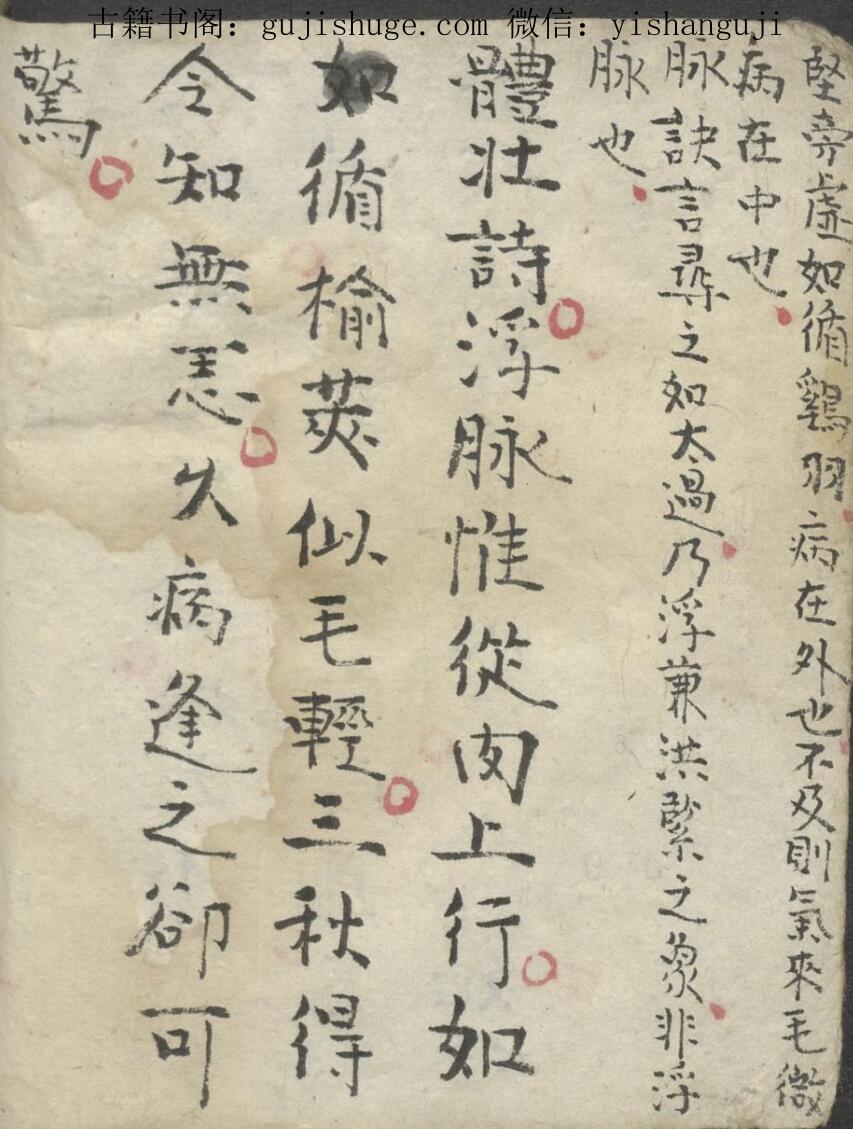 古籍书阁：gujishuge.com 微信：yishanguji
堅旁虛如循鷄羽病在外也不及則氣來毛微
病在中也
脉訣言尋之如太過乃浮兼洪緊之象非浮
脉也
體壯詩浮脉惟從肉上行如
如循榆莢似毛輕三秋得
令知無恙久病逢之卻可
驚